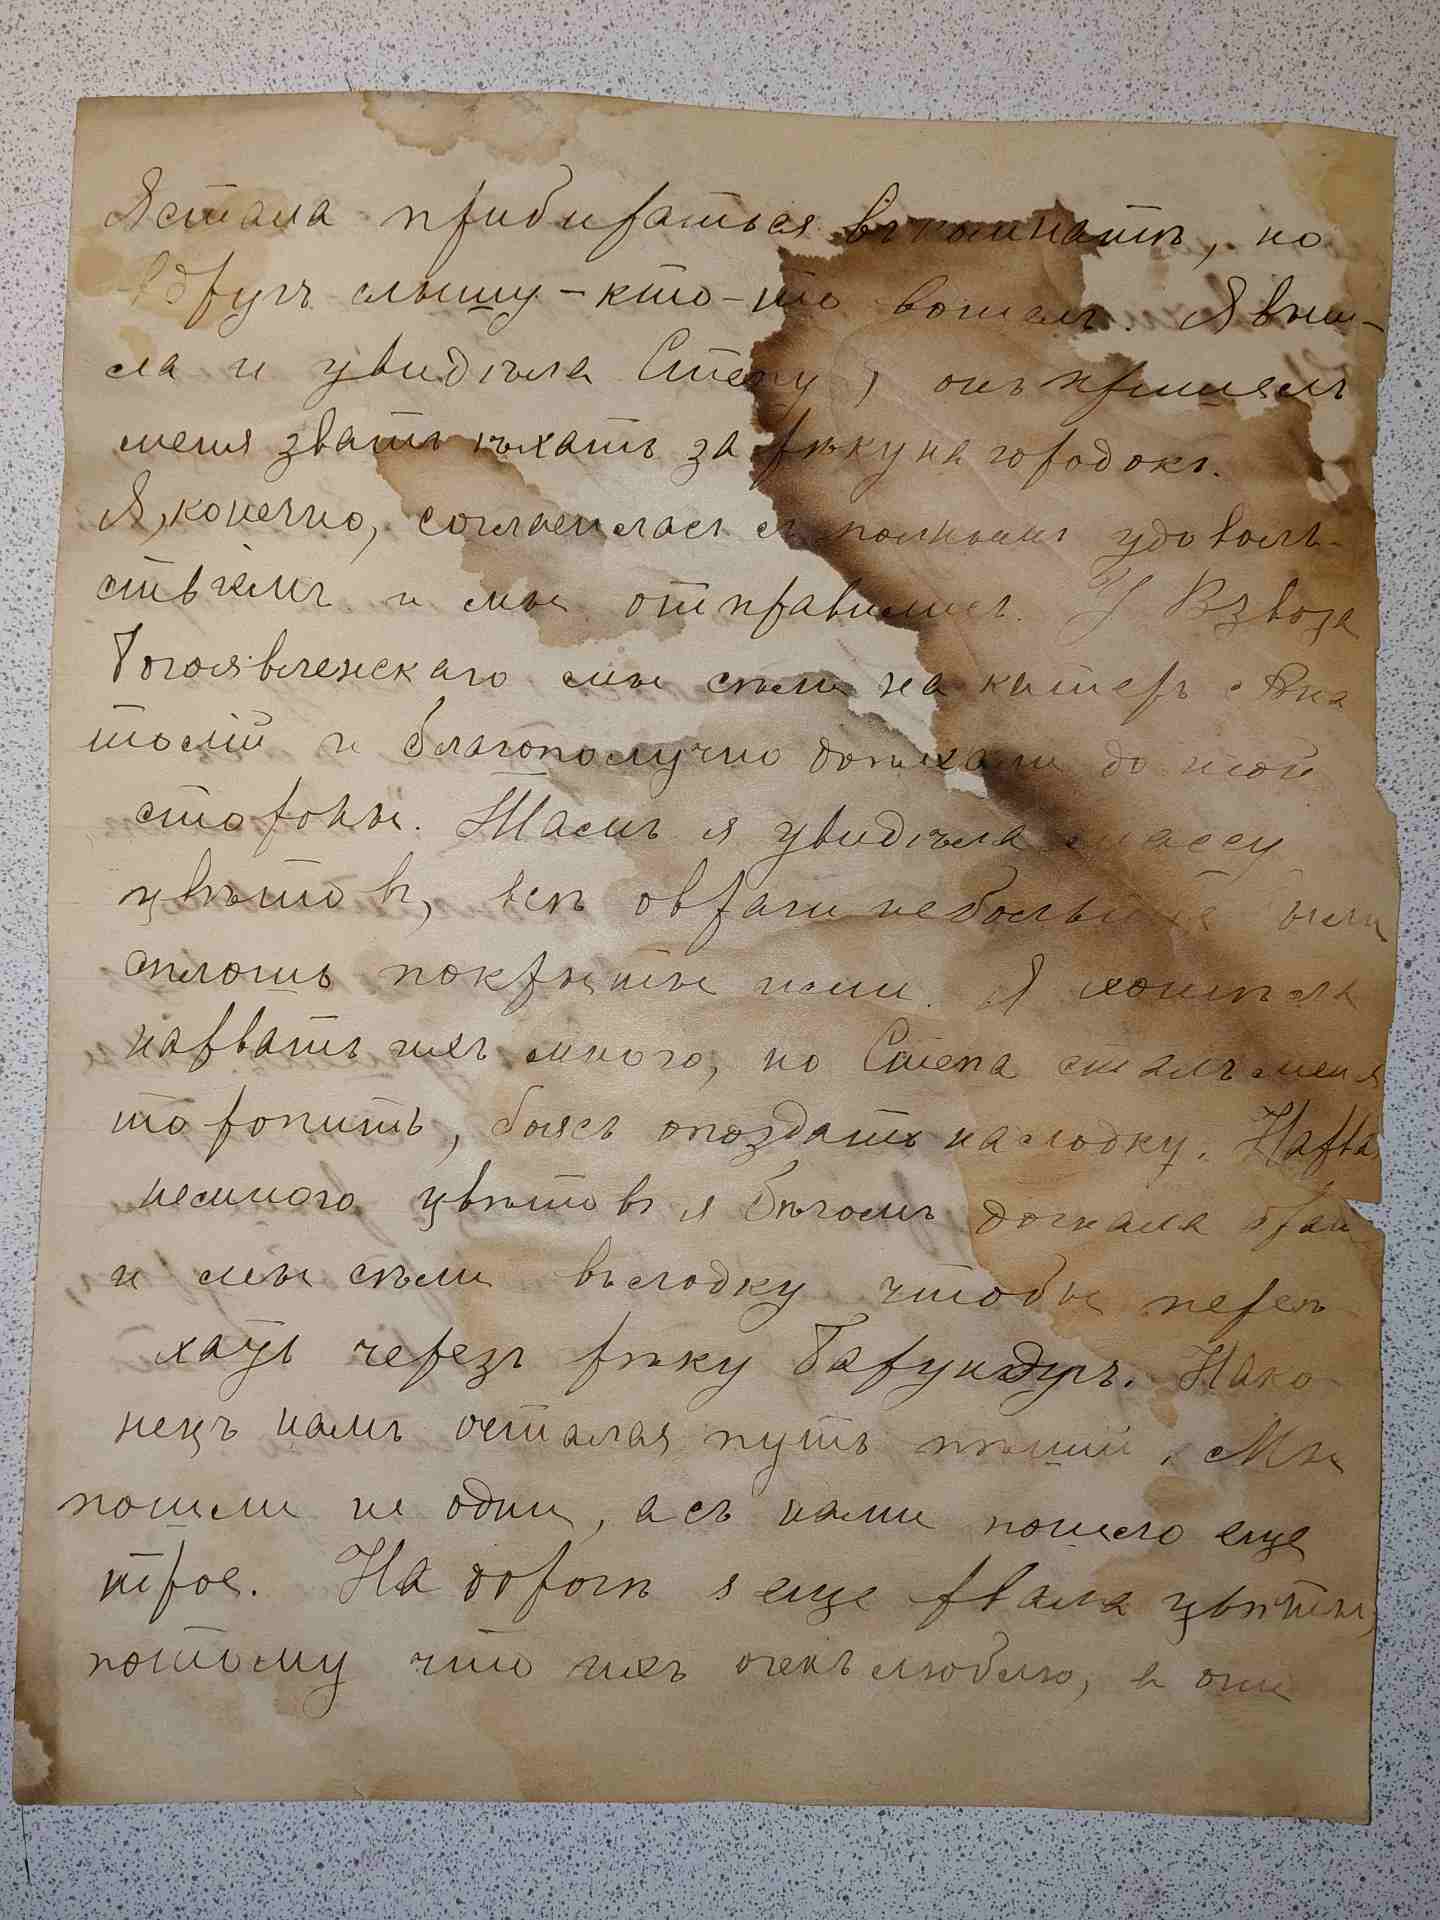 Я стала прибираться въ комнатѣ, но
вдругъ слышу – кто-то вошелъ. Я выш-
ла и увидѣла Степу, онъ пришелъ
меня звать ѣхать за рѣку на городокъ.
Я, конечно, согласилась съ полнымъ удоволь-
ствіемъ и мы отправились. У Взвоза
Богоявленскаго мы сѣли на катеръ
и благополучно доѣхали до той
стороны. Тамъ я увидѣла массу
цвѣтовъ, всѣ овраги небольшіе были
сплошь покрыты ими. Я хотѣла
нарвать ихъ много, но Степа сталъ меня
торопить, боясь опоздать на лодку. Нарва
немного цвѣтовъ я бѣгомъ догнала
и мы сѣли въ лодку чтобы переѣ
хать черезъ рѣку Барундукъ. Нако
нецъ намъ остался путь пѣшій. Мы
пошли не одни, а съ нами пошло еще
трое. На дорогѣ я еще рвала цвѣты,
потому что ихъ очень люблю, а они